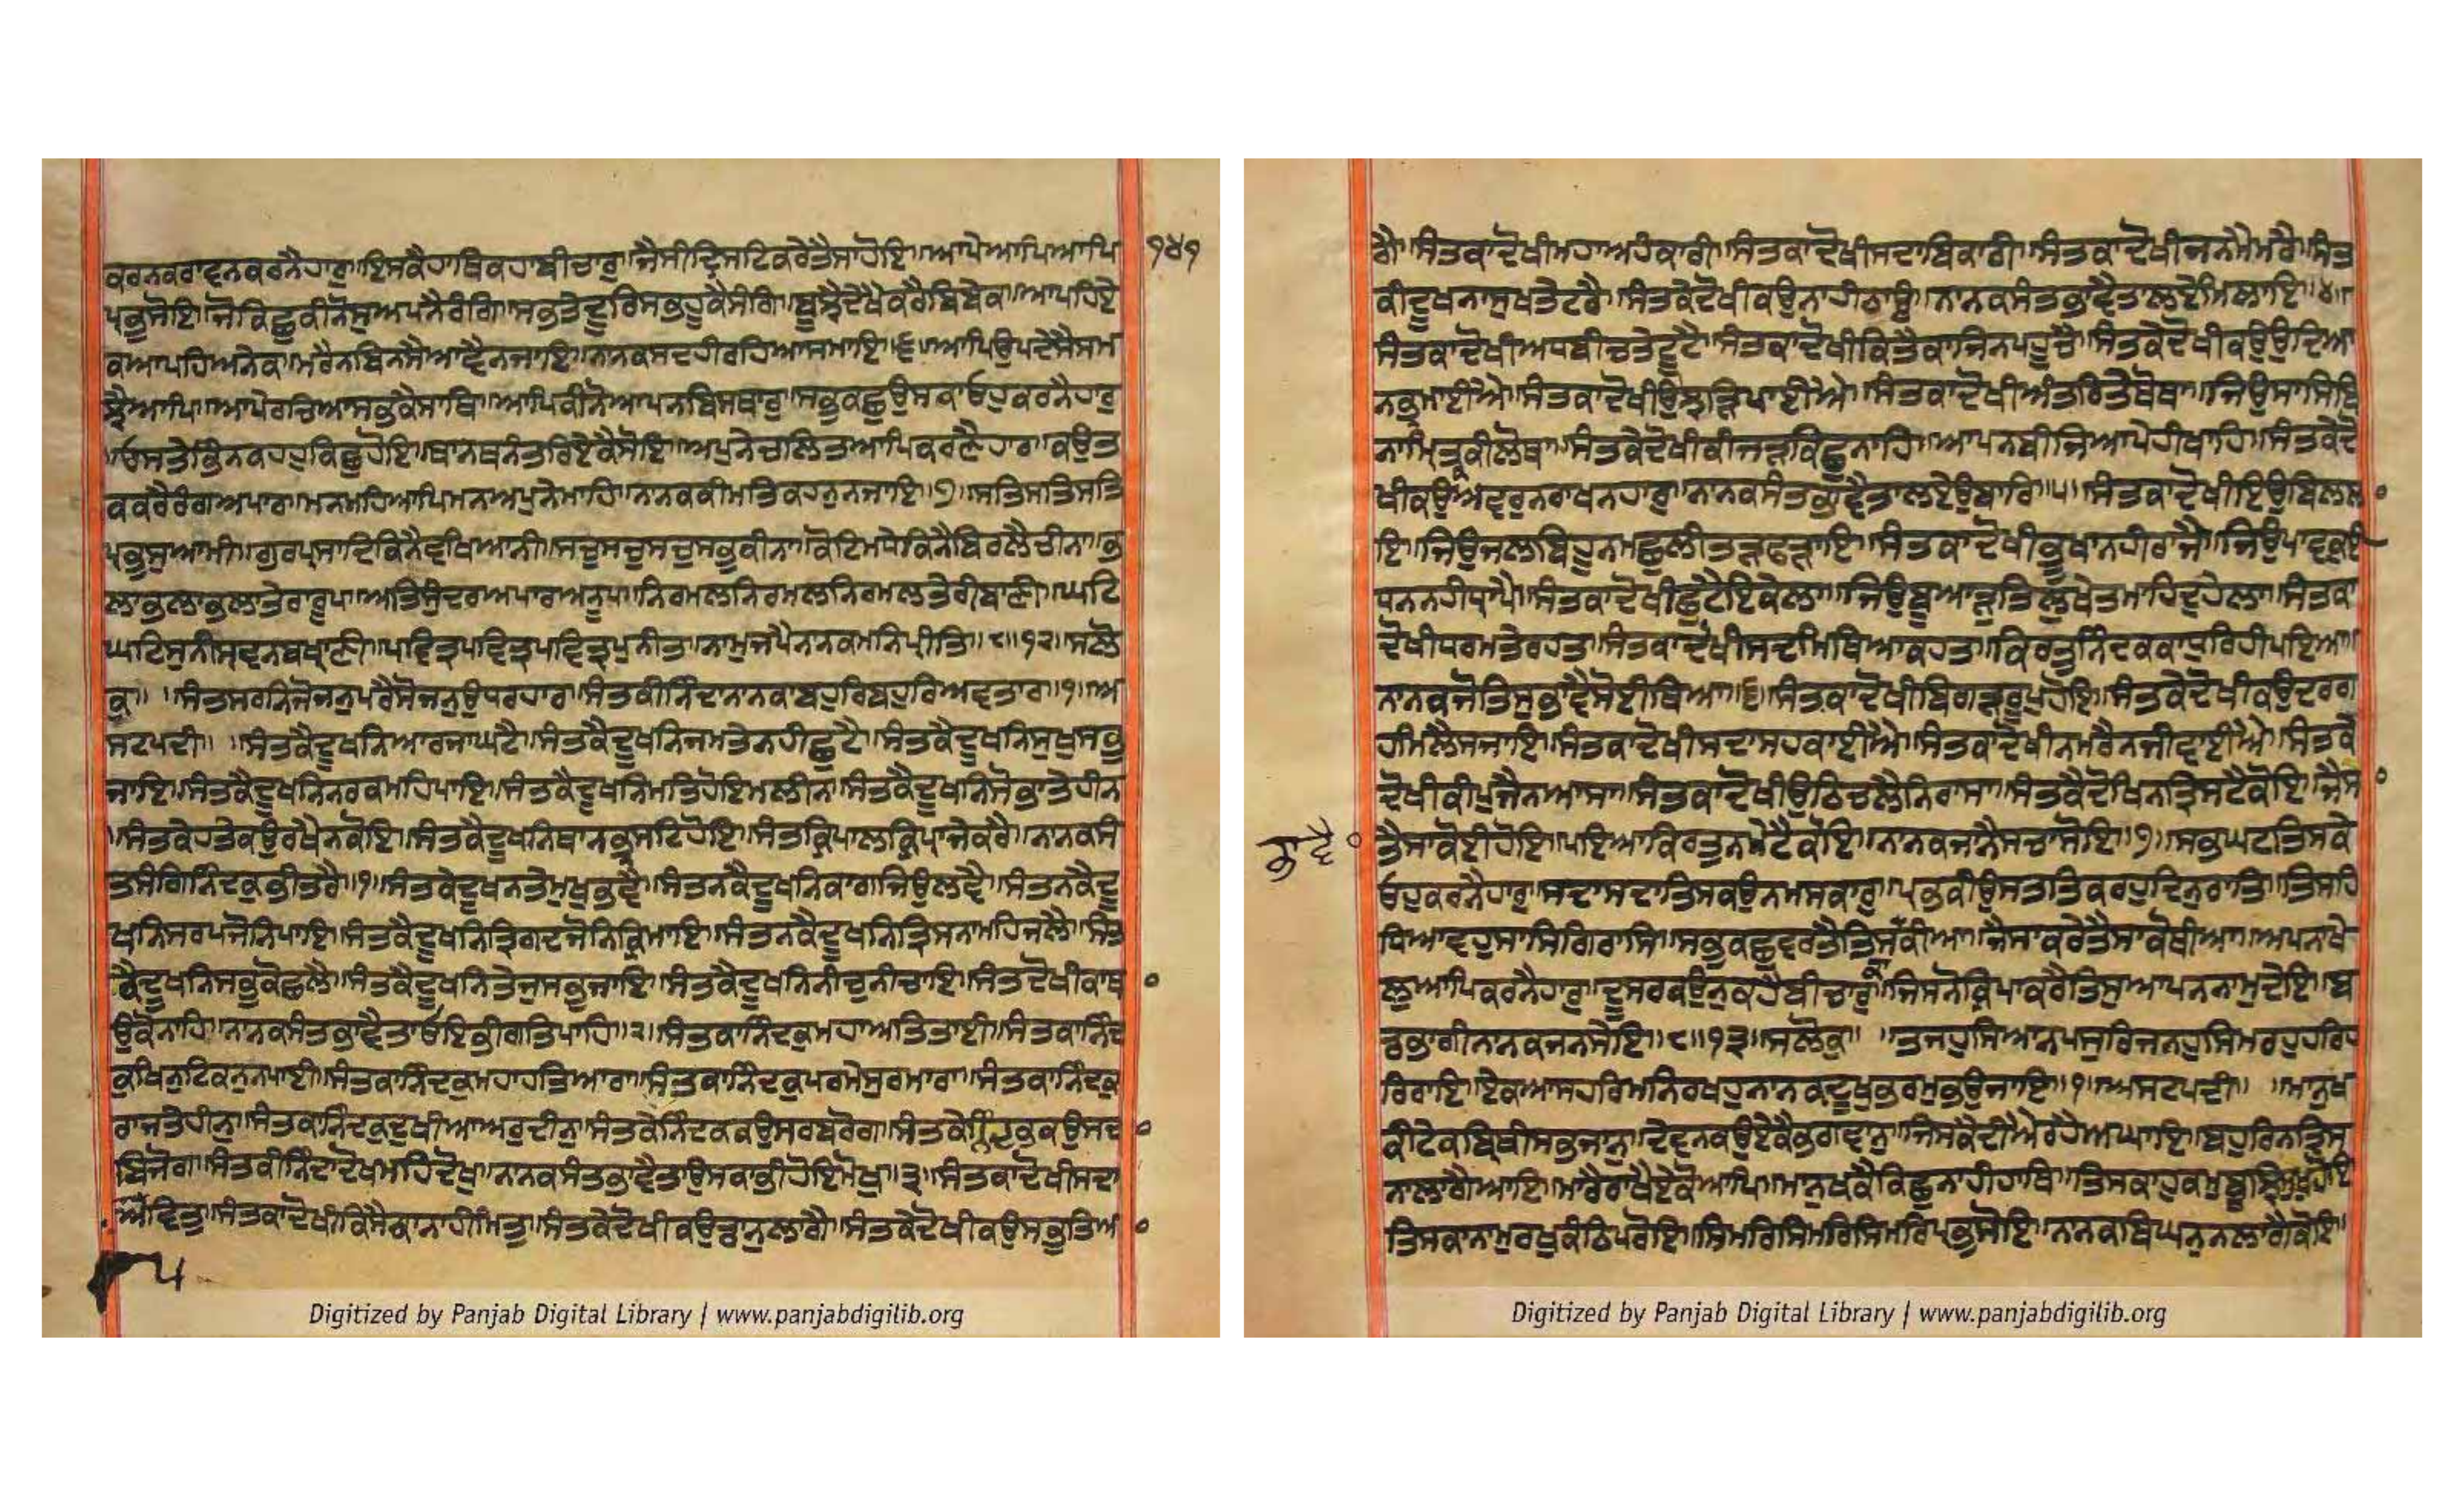 ਕਰਨਕਰਾਵਨਕਰਨੈਹਾਰੁ॥ਇਸਕੈਹਾਥਿਕਹਾਬੀਚਾਰੁ॥ਜੈਸੀਦ੍ਰਿਸਟਿਕਰੇਤੈਸਾਹੋਇ॥ਆਪੇਆਪਿਆਪਿ ੧੪੧
ਪ੍ਰਭੁਸੋਇ॥ਜੋਕਿਛੁਕੀਨੋਸੁਅਪਨੈਰੰਗਿ॥ਸਭਤੇਦੂਰਿਸਭਹੂਕੈਸੰਗਿ॥ਬੂਝੈਦੇਖੈਕਰੈਬਿਬੇਕ॥ਆਪਹਿਏ
ਕਆਪਹਿਅਨੇਕ॥ਮਰੈਨਬਿਨਸੈਆਵੈਨਜਾਇ॥ਨਾਨਕਸਦਹੀਰਹਿਆਸਮਾਇ॥੬॥ਆਪਿਉਪਦੇਸੈਸਮ
ਝੈਆਪਿ॥ਆਪੇਰਚਿਆਸਭਕੈਸਾਥਿ॥ਆਪਿਕੀਨੋਆਪਨਬਿਸਥਾਰੁ॥ਸਭੁਕਛੁਉਸਕਾਓਹੁਕਰਨੈਹਾਰੁ
॥ਓਸਤੇਭਿੰਨਕਹਹੁਕਿਛੁਹੋਇ॥ਥਾਨਥਨੰਤਰਿਏਕੈਸੋਇ॥ਅਪੁਨੇਚਲਿਤਆਪਿਕਰਣੈਹਾਰ॥ਕਉਤ
ਕਕਰੈਰੰਗਅਪਾਰ॥ਮਨਮਹਿਆਪਿਮਨਅਪੁਨੇਮਾਹਿ॥ਨਾਨਕਕੀਮਤਿਕਹਨੁਨਜਾਇ॥੭॥ਸਤਿਸਤਿਸਤਿ
ਪ੍ਰਭੁਸੁਆਮੀ॥ਗੁਰਪ੍ਰਸਾਦਿਕਿਨੈਵਖਿਆਨੀ॥ਸਚੁਸਚੁਸਚੁਸਭੁਕੀਨਾ॥ਕੋਟਿਮਧੇਕਿਨੈਬਿਰਲੈਚੀਨਾ॥ਭ
ਲਾਭਲਾਭਲਾਤੇਰਾਰੂਪ॥ਅਤਿਸੁੰਦਰਅਪਾਰਅਨੂਪ॥ਨਿਰਮਲਨਿਰਮਲਨਿਰਮਲਤੇਰੀਬਾਣੀ॥ਘਟਿ
ਘਟਿਸੁਨੀਸ੍ਰਵਨਬਖ੍ਯਾਣੀ॥ਪਵਿਤ੍ਰਪਵਿਤ੍ਰਪਵਿਤ੍ਰਪੁਨੀਤ॥ਨਾਮੁਜਪੈਨਾਨਕਮਨਿਪ੍ਰੀਤਿ॥੮॥੧੨॥ਸਲੋ
ਕੁ॥ ॥ਸੰਤਸਰਨਿਜੋਜਨੁਪਰੈਸੋਜਨੁਉਧਰਨਹਾਰ॥ਸੰਤਕੀਨਿੰਦਾਨਾਨਕਾਬਹੁਰਿਬਹੁਰਿਅਵਤਾਰ॥੧॥ਅ
ਸਟਪਦੀ॥ ॥ਸੰਤਕੈਦੂਖਨਿਆਰਜਾਘਟੈ॥ਸੰਤਕੈਦੂਖਨਿਜਮਤੇਨਹੀਛੁਟੈ॥ਸੰਤਕੈਦੂਖਨਿਸੁਖੁਸਭੁ
ਜਾਇ॥ਸੰਤਕੈਦੂਖਨਿਨਰਕਮਹਿਪਾਇ॥ਸੰਤਕੈਦੂਖਨਿਮਤਿਹੋਇਮਲੀਨ॥ਸੰਤਕੈਦੂਖਨਿਸੋਭਾਤੇਹੀਨ
॥ਸੰਤਕੇਹਤੇਕਉਰਖੈਨਕੋਇ॥ਸੰਤਕੈਦੂਖਨਿਥਾਨਭ੍ਰਸਟਿਹੋਇ॥ਸੰਤਕ੍ਰਿਪਾਲਕ੍ਰਿਪਾਜੇਕਰੈ॥ਨਾਨਕਸੰ
ਤਸੰਗਿਨਿੰਦਕੁਭੀਤਰੈ॥੧॥ਸੰਤਕੇਦੂਖਨਤੇਮੁਖੁਭਵੈ॥ਸੰਤਨਕੈਦੂਖਨਿਕਾਗਜਿਉਲਵੈ॥ਸੰਤਨਕੈਦੂ
ਖਨਿਸਰਪਜੋਨਿਪਾਇ॥ਸੰਤਕੈਦੂਖਨਿਤ੍ਰਿਗਦਜੋਨਿਕਿਰਮਾਇ॥ਸੰਤਨਕੈਦੂਖਨਿਤ੍ਰਿਸਨਾਮਹਿਜਲੈ॥ਸੰਤ
ਕੈਦੂਖਨਿਸਭੁਕੋਛਲੈ॥ਸੰਤਕੈਦੂਖਨਿਤੇਜੁਸਭੁਜਾਇ॥ਸੰਤਕੈਦੂਖਨਿਨੀਚੁਨੀਚਾਇ॥ਸੰਤਦੋਖੀਕਾਥ
ਉਕੋਨਾਹਿ॥ਨਾਨਕਸੰਤਭਾਵੈਤਾਓਇਭੀਗਤਿਪਾਹਿ॥੨॥ਸੰਤਕਾਨਿੰਦਕੁਮਹਾਅਤਿਤਾਈ॥ਸੰਤਕਾਨਿੰਦ
ਕੁਖਿਨੁਟਿਕਨੁਨਪਾਈ॥ਸੰਤਕਾਨਿੰਦਕੁਮਹਾਹਤਿਆਰਾ॥ਸੰਤਕਾਨਿੰਦਕੁਪਰਮੇਸੁਰਮਾਰਾ॥ਸੰਤਕਾਨਿੰਦਕੁ
ਰਾਜਤੇਹੀਨੁ॥ਸੰਤਕਾਨਿੰਦਕੁਦੁਖੀਆਅਰੁਦੀਨੁ॥ਸੰਤਕੇਨਿੰਦਕਕਉਸਰਬਰੋਗ॥ਸੰਤਕੇਨਿੰਦਕਕਉਸਦ
ਬਿਜੋਗ॥ਸੰਤਕੀਨਿੰਦਾਦੋਖਮਹਿਦੋਖੁ॥ਨਾਨਕਸੰਤਭਾਵੈਤਾਉਸਕਾਭੀਹੋਇਮੋਖੁ॥੩॥ਸੰਤਕਾਦੋਖੀਸਦਾ
ਅਪਵਿਤੁ॥ਸੰਤਕਾਦੋਖੀਕਿਸੈਕਾਨਾਹੀਮਿਤੁ॥ਸੰਤਕੇਦੋਖੀਕਉਡਾਨੁਲਾਗੈ॥ਸੰਤਕੇਦੋਖੀਕਉਸਭਤਿਆ
੫
Digitized by Panjab Digital Library | www.panjabdigilib.org
ਗੈ॥ਸੰਤਕਾਦੋਖੀਮਹਾਅਹੰਕਾਰੀ॥ਸੰਤਕਾਦੋਖੀਸਦਾਬਿਕਾਰੀ॥ਸੰਤਕਾਦੋਖੀਜਨਮੈਮਰੈ॥ਸੰਤ
ਕੀਦੂਖਨਾਸੁਖਤੇਟਰੈ॥ਸੰਤਕੇਦੋਖੀਕਉਨਾਹੀਠਾਉ॥ਨਾਨਕਸੰਤਭਾਵੈਤਾਲਏਮਿਲਾਇ॥੪॥
ਸੰਤਕਾਦੋਖੀਅਧਬੀਚਤੇਟੂਟੈ॥ਸੰਤਕਾਦੋਖੀਕਿਤੈਕਾਜਿਨਪਹੂਚੈ॥ਸੰਤਕੇਦੋਖੀਕਉਉਦਿਆ
ਨਭ੍ਰਮਾਈਐ॥ਸੰਤਕਾਦੋਖੀਉਝੜਿਪਾਈਐ॥ਸੰਤਕਾਦੋਖੀਅੰਤਰਿਤੇਥੋਥਾ॥ਜਿਉਸਾਸਬਿ
ਨਾਮਿਰਤਕੀਲੋਥਾ॥ਸੰਤਕੇਦੋਖੀਕੀਜੜਕਿਛੁਨਾਹਿ॥ਆਪਨਬੀਜਿਆਪੇਹੀਖਾਹਿ॥ਸੰਤਕੇਦੋ
ਖੀਕਉਅਵਰੁਨਰਾਖਨਹਾਰੁ॥ਨਾਨਕਸੰਤਭਾਵੈਤਾਲਏਉਬਾਰਿ॥੫॥ਸੰਤਕਾਦੋਖੀਇਉਬਿਲਲਾ
ਇ॥ਜਿਉਜਲਬਿਹੂਨਮਛੁਲੀਤੜਫੜਾਇ॥ਸੰਤਕਾਦੋਖੀਭੂਖਾਨਹੀਰਾਜੈ॥ਜਿਉਪਾਵਕੁਈ
ਧਨਨਹੀਧ੍ਰਾਪੈ॥ਸੰਤਕਾਦੋਖੀਛੁਟੈਇਕੇਲਾ॥ਜਿਉਬੂਆੜੁਤਿਲੁਖੇਤਮਾਹਿਦੁਹੇਲਾ॥ਸੰਤਕਾ
ਦੋਖੀਧਰਮਤੇਰਹਤ॥ਸੰਤਕਾਦੋਖੀਸਦਮਿਥਿਆਕਹਤ॥ਕਿਰਤੁਨਿੰਦਕਕਾਧੁਰਿਹੀਪਇਆ॥
ਨਾਨਕਜੋਤਿਸੁਭਾਵੈਸੋਈਥਿਆ॥੬॥ਸੰਤਕਾਦੋਖੀਬਿਗੜਰੂਪੁਹੋਇ॥ਸੰਤਕੇਦੋਖੀਕਉਦਰਗ
ਹਮਿਲੈਸਜਾਇ॥ਸੰਤਕਾਦੋਖੀਸਦਾਸਹਕਾਈਐ॥ਸੰਤਕਾਦੋਖੀਨਮਰੈਨਜੀਵਾਈਐ॥ਸੰਤਕੇ
ਦੋਖੀਕੀਪੁਜੈਨਆਸਾ॥ਸੰਤਕਾਦੋਖੀਉਠਿਚਲੈਨਿਰਾਸਾ॥ਸੰਤਕੈਦੋਖਿਨਤ੍ਰਿਸਟੈਕੋਇ॥ਜੈਸਾ
ਭਾਵੈ ਤੈਸਾਕੋਈਹੋਇ॥ਪਇਆਕਿਰਤੁਨਮੇਟੈਕੋਇ॥ਨਾਨਕਜਾਨੈਸਚਾਸੋਇ॥੭॥ਸਭਘਟਤਿਸਕੇ
ਓਹੁਕਰਨੈਹਾਰੁ॥ਸਦਾਸਦਾਤਿਸਕਉਨਮਸਕਾਰੁ॥ਪ੍ਰਭਕੀਉਸਤਤਿਕਰਹੁਦਿਨੁਰਾਤਿ॥ਤਿਸਹਿ
ਧਿਆਵਹੁਸਾਸਿਗਿਰਾਸਿ॥ਸਭੁਕਛੁਵਰਤੈਤਿਸਕਾਕੀਆ॥ਜੈਸਾਕਰੇਤੈਸਾਕੋਥੀਆ॥ਅਪਨਾਖੇ
ਲੁਆਪਿਕਰਨੈਹਾਰੁ॥ਦੂਸਰਕਉਨੁਕਹੈਬੀਚਾਰੁ॥ਜਿਸਨੋਕ੍ਰਿਪਾਕਰੈਤਿਸੁਆਪਨਨਾਮੁਦੇਇ॥ਬ
ਡਭਾਗੀਨਾਨਕਜਨਸੇਇ॥੮॥੧੩॥ਸਲੋਕੁ॥ ॥ਤਜਹੁਸਿਆਨਪਸੁਰਿਜਨਹੁਸਿਮਰਹੁਹਰਿਹ
ਰਿਰਾਇ॥ਇਕਆਸਹਰਿਮਨਿਰਖਹੁਨਾਨਕਦੂਖੁਭਰਮੁਭਉਜਾਇ॥੧॥ਅਸਟਪਦੀ॥ ॥ਮਾਨੁਖ
ਕੀਟੇਕਬ੍ਰਿਥੀਸਭਜਾਨੁ॥ਦੇਵਨਕਉਏਕੈਭਗਵਾਨੁ॥ਜਿਸਕੈਦੀਐਰਹੈਅਘਾਇ॥ਬਹੁਰਿਨਤ੍ਰਿਸ
ਨਾਲਾਗੈਆਇ॥ਮਾਰੈਰਾਖੈਏਕੋਆਪਿ॥ਮਾਨੁਖਕੈਕਿਛੁਨਾਹੀਹਾਥਿ॥ਤਿਸਕਾਹੁਕਮੁਬੂਝਿਸੁਖੁਹੋਇ
ਤਿਸਕਾਨਾਮੁਰਖੁਕੰਠਿਪਰੋਇ॥ਸਿਮਰਿਸਿਮਰਿਸਿਮਰਿਪ੍ਰਭੁਸੋਇ॥ਨਾਨਕਬਿਘਨੁਨਲਾਗੈਕੋਇ॥
Digitized by Panjab Digital Library | www.panjabdigilib.org